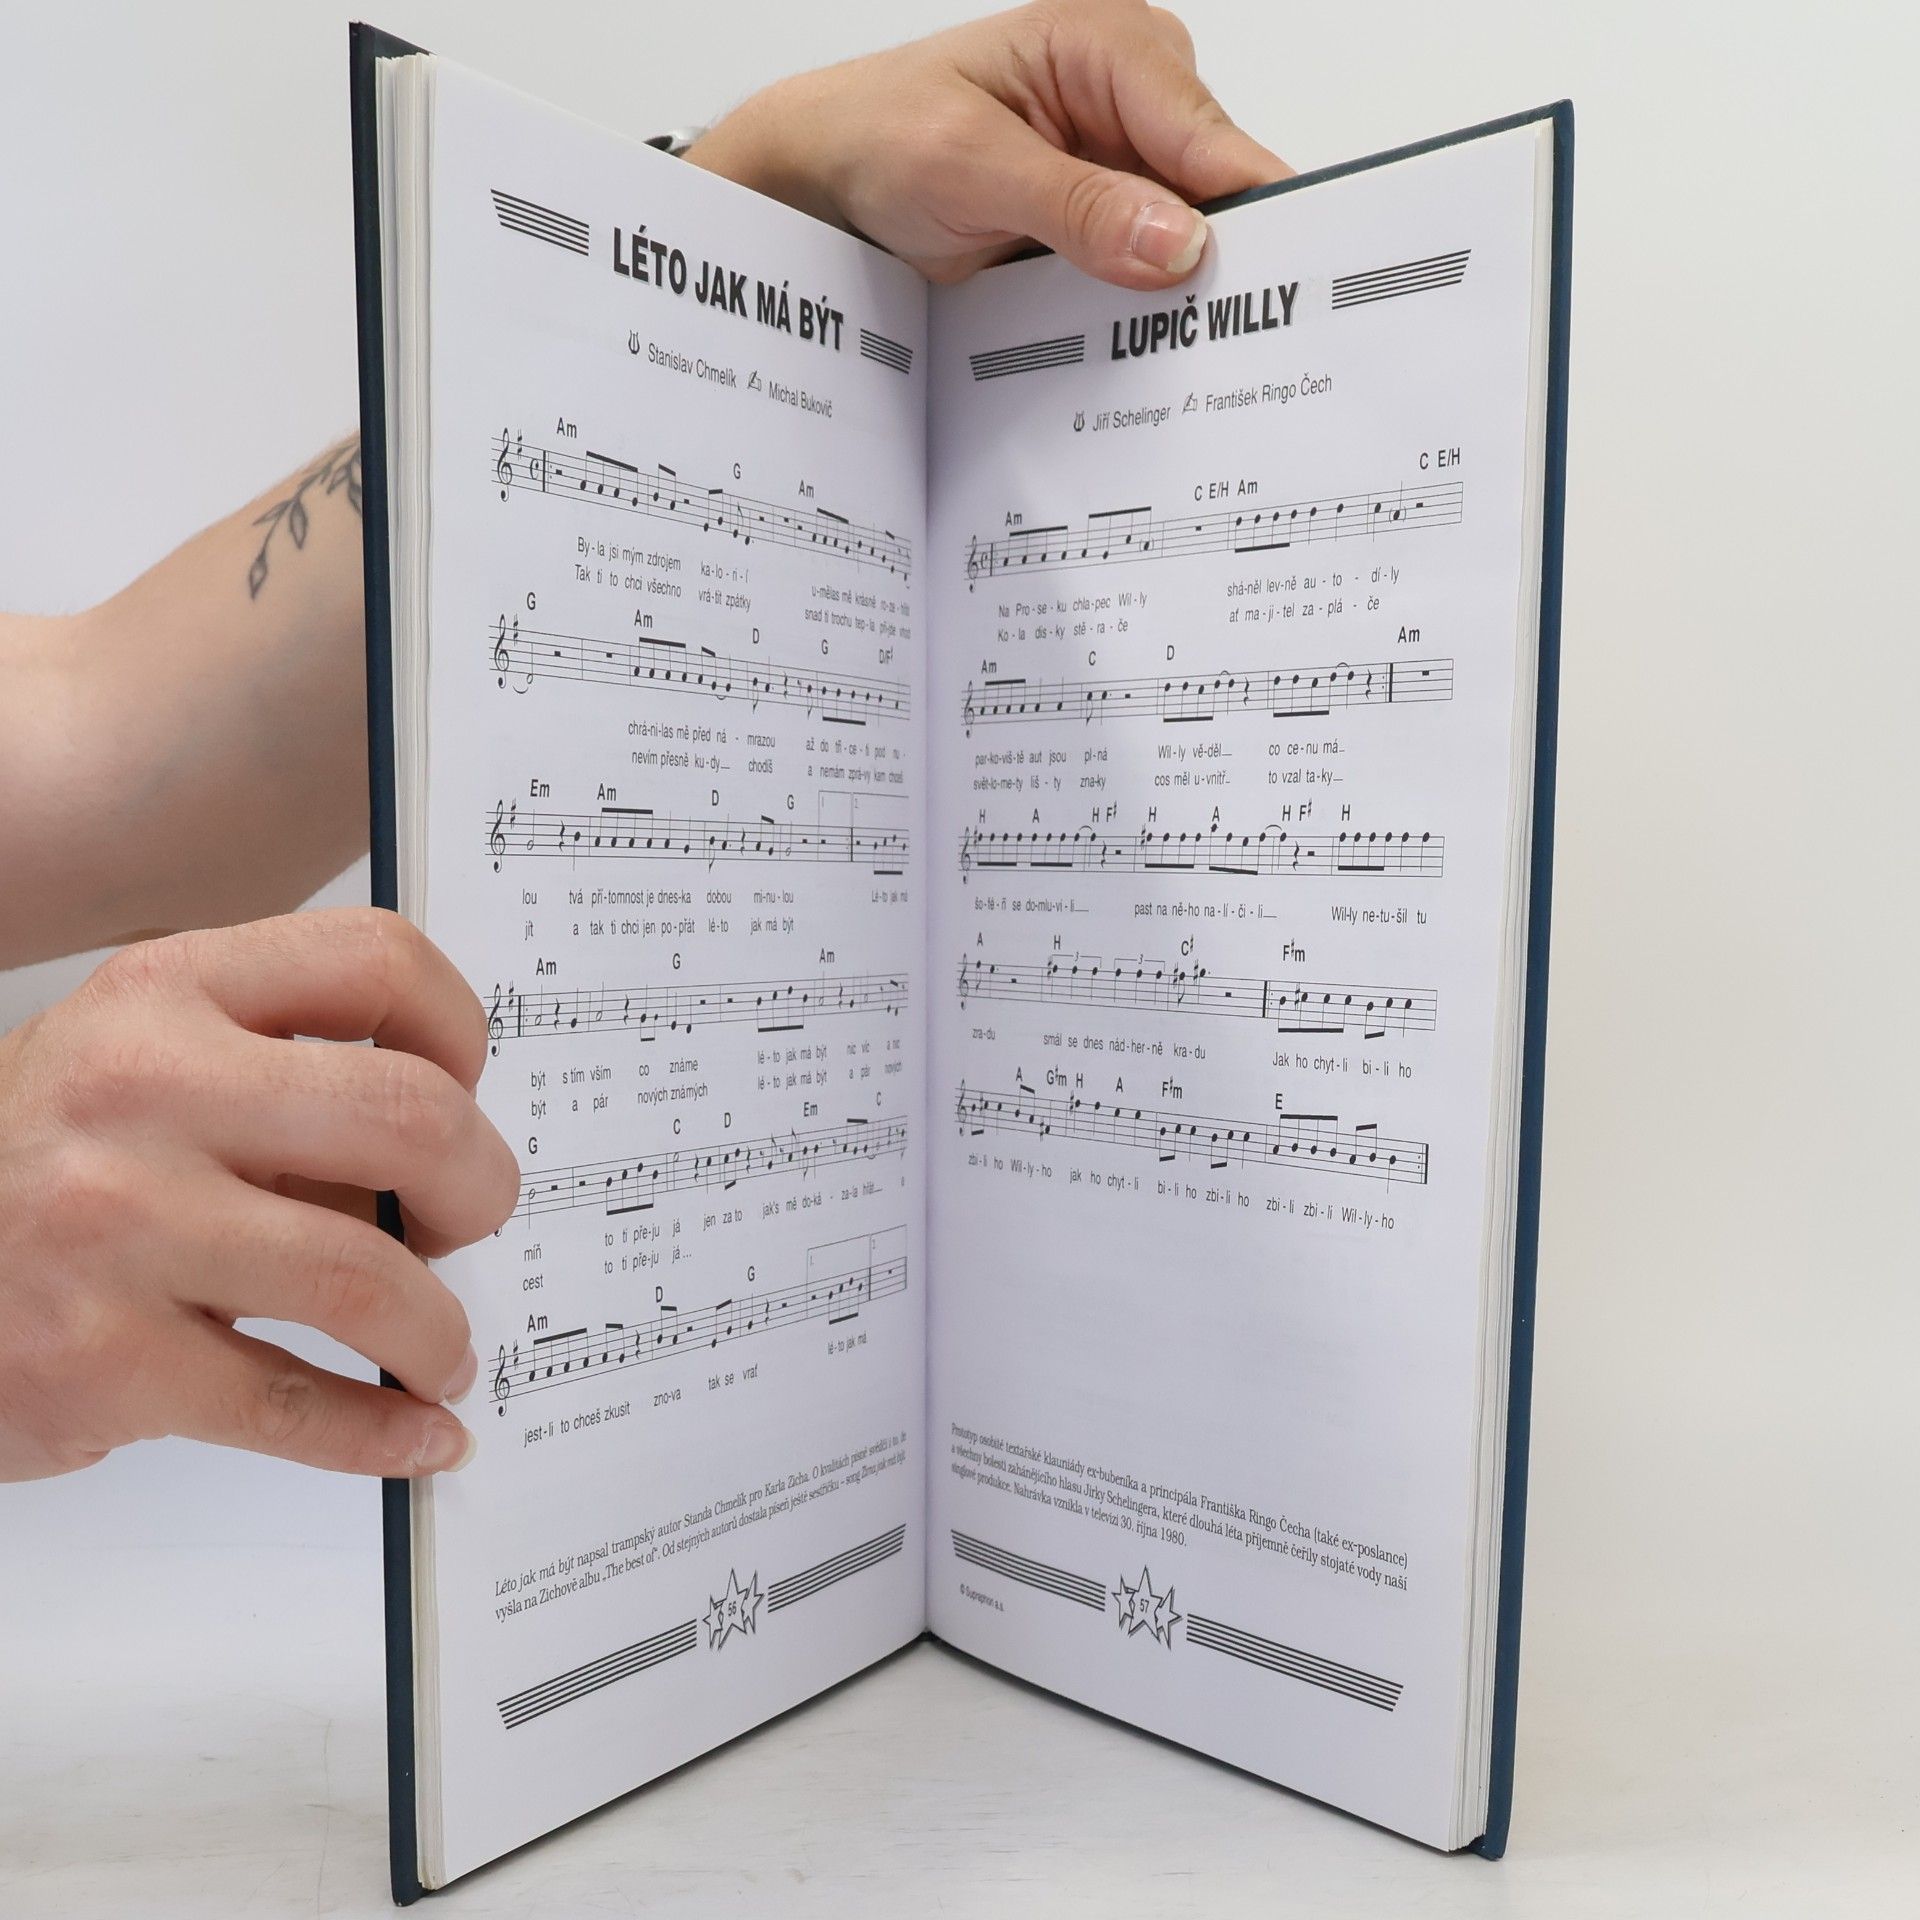 LÉTO JAK MÁ BÝT
Stanislav Chmelík Michal Bukovič
Am G Am
By-la jsi mým zdrojem ka-lo-ri-í u-mělas mě krásně ro-ze-
Tak ti to chci všechno vrá-tit zpátky snad ti trochu tep-la při-jde vhod
G Am D G D/F#
chrá-ni-las mě před ná - mrazou až do tři-ce-ti pod nu-
nevím přesně ku-dy chodíš a nemám zprá-vy kam chceš
Em Am D G 1. 2.
lou tvá pří-tomnost je dnes-ka dobou mi-nu-lou Lé-to jak má
jít a tak ti chci jen po-přát lé-to jak má být
Am G Am
být s tím vším co známe lé-to jak má být nic víc a nic
být a pár nových známých lé-to jak má být a pár nových
G C D Em C
míň to ti pře-ju já jen za to jak's mě do-ká - za-la hřát a
cest to ti pře-ju já...
Am D G 1. 2.
jest-li to chceš zkusit zno-va tak se vrať lé-to jak má
Léto jak má být napsal trampský autor Standa Chmelík pro Karla Zicha. O kvalitách písně svědčí i to, že
vyšla na Zichově albu „The best of“. Od stejných autorů dostala píseň ještě sestřičku – song Zima jak má být.
56
LUPIČ WILLY
Jiří Schelinger František Ringo Čech
Am C E/H Am C E/H
Na Pro-se-ku chla-pec Wil-ly shá-něl lev-ně au-to-dí-ly
Ko-la dis-ky stě-ra-če ať ma-ji-tel za-plá-če
Am C D Am
par-ko-viš-tě aut jsou pl-ná Wil-ly vě-děl co ce-nu má
svět-lo-me-ty liš-ty zna-ky cos měl u-vnitř to vzal ta-ky
H A H F# H A H F# H
šo-fé-ři se do-mlu-vi-li past na ně-ho na-lí-či-li Wil-ly ne-tu-šil tu
A H 3 3 C# F#m
zra-du smál se dnes nád-her-ně kra-du Jak ho chyt-li bi-li ho
A G#m H A F#m E
zbi-li ho Wil-ly-ho jak ho chyt-li bi-li ho zbi-li ho zbi-li zbi-li Wil-ly-ho
Prototyp osobité textařské klauniády ex-bubeníka a principála Františka Ringo Čecha (také ex-poslance)
a všechny bolesti zahánějícího hlasu Jirky Schelingera, které dlouhá léta příjemně čeřily stojaté vody naší
singlové produkce. Nahrávka vznikla v televizi 30. října 1980.
© Supraphon a.s.
57